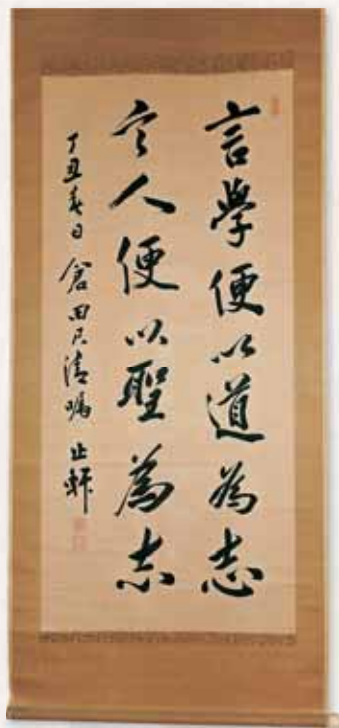 言學便以道為志
言人便以聖為志
丁丑春日 倉田氏清嘱 止軒